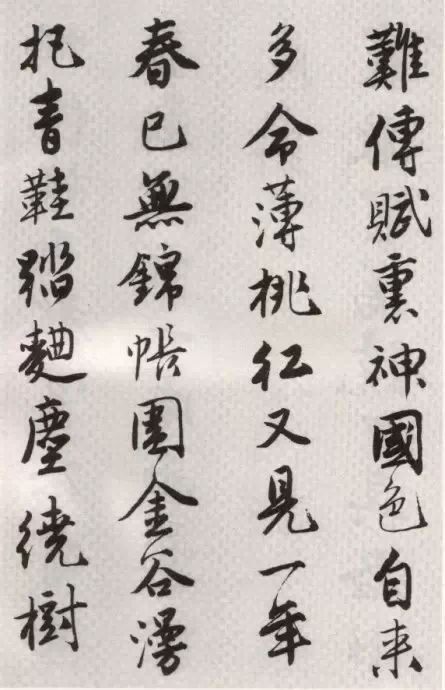 難傳賦裏神國色自来
多命薄桃红又見一年
春已無錦帳圍金谷漫
把青鞋踏麴塵繞樹